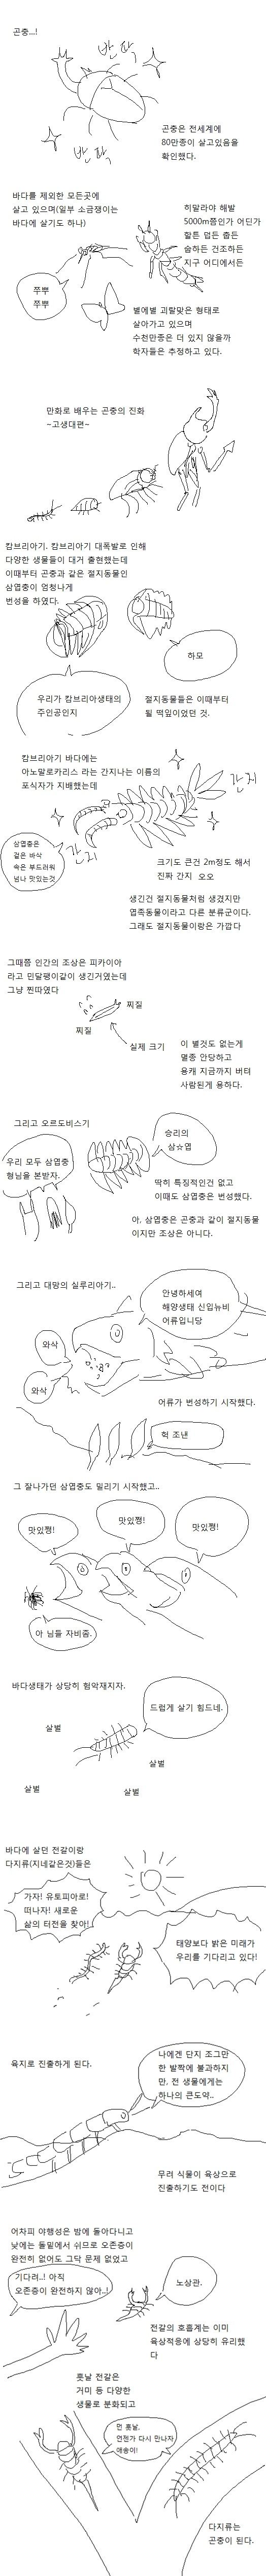 곤충...!
반짝
반짝
곤충은 전세계에
80만종이 살고있음을
확인했다.
바다를 제외한 모든곳에
살고 있으며(일부 소금쟁이는
바다에 살기도 하나)
히말라야 해발
5000m쯤인가 어딘가
할튼 덥든 춥든
습하든 건조하든
지구 어디에서든
쭈뿌
쭈뿌
별에별 괴랄맞은 형태로
살아가고 있으며
수천만종은 더 있지 않을까
학자들은 추정하고 있다.
만화로 배우는 곤충의 진화
~고생대편~
캄브리아기. 캄브리아기 대폭발로 인해
다양한 생물들이 대거 출현했는데
이때부터 곤충과 같은 절지동물인
삼엽충이 엄청나게
번성을 하였다.
하모
우리가 캄브리아생태의
주인공인지
절지동물들은 이때부터
될 떡잎이었던 것.
캄브리아기 바다에는
아노말로카리스 라는 간지나는 이름의
포식자가 지배했는데
간지
삼엽충은
겉은 바삭
속은 부드러워
넘나 맛있는것
간지
크기도 큰건 2m정도 해서
진짜 간지 오오
생긴건 절지동물처럼 생겼지만
엽족동물이라고 다른 분류군이다.
그래도 절지동물이랑은 가깝다
그때쯤 인간의 조상은 피카이아
라고 민달팽이같이 생긴거였는데
그냥 찐따였다
찌질
찌질
실제 크기
이 별것도 없는게
멸종 안당하고
용캐 지금까지 버텨
사람된게 용하다.
그리고 오르도비스기
승리의
삼☆엽
우리 모두 삼엽충
형님을 본받자.
딱히 특징적인건 없고
이때도 삼엽충은 번성했다.
아, 삼엽충은 곤충과 같이 절지동물
이지만 조상은 아니다.
그리고 대망의 실루리아기..
안녕하세여
해양생태 신입뉴비
어류입니당
와삭
와삭
어류가 번성하기 시작했다.
헉 조낸
그 잘나가던 삼엽충도 밀리기 시작했고..
맛있쩡!
맛있쩡!
맛있쩡!
아 님들 자비좀.
바다생태가 상당히 험악재지자.
드럽게 살기 힘드네.
살벌
살벌
살벌
살벌
바다에 살던 전갈이랑
다지류(지네같은것)들은
가자! 유토피아로!
떠나자! 새로운
삶의 터전을 찾아!
태양보다 밝은 미래가
우리를 기다리고 있다!
육지로 진출하게 된다.
나에겐 단지 조그만
한 발짝에 불과하지
만, 전 생물에게는
하나의 큰도약..
무려 식물이 육상으로
진출하기도 전이다
어차피 야행성은 밤에 돌아다니고
낮에는 돌밑에서 쉬므로 오존층이
완전히 없어도 그닥 문제 없었고
기다려..! 아직
오존층이 완전하지 않아..!
노상관.
전갈의 호흡계는 이미
육상적응에 상당히 유리했
다
훗날 전갈은
거미 등 다양한
생물로 분화되고
먼 훗날,
언젠가 다시 만나자
애송이!
다지류는
곤충이 된다.